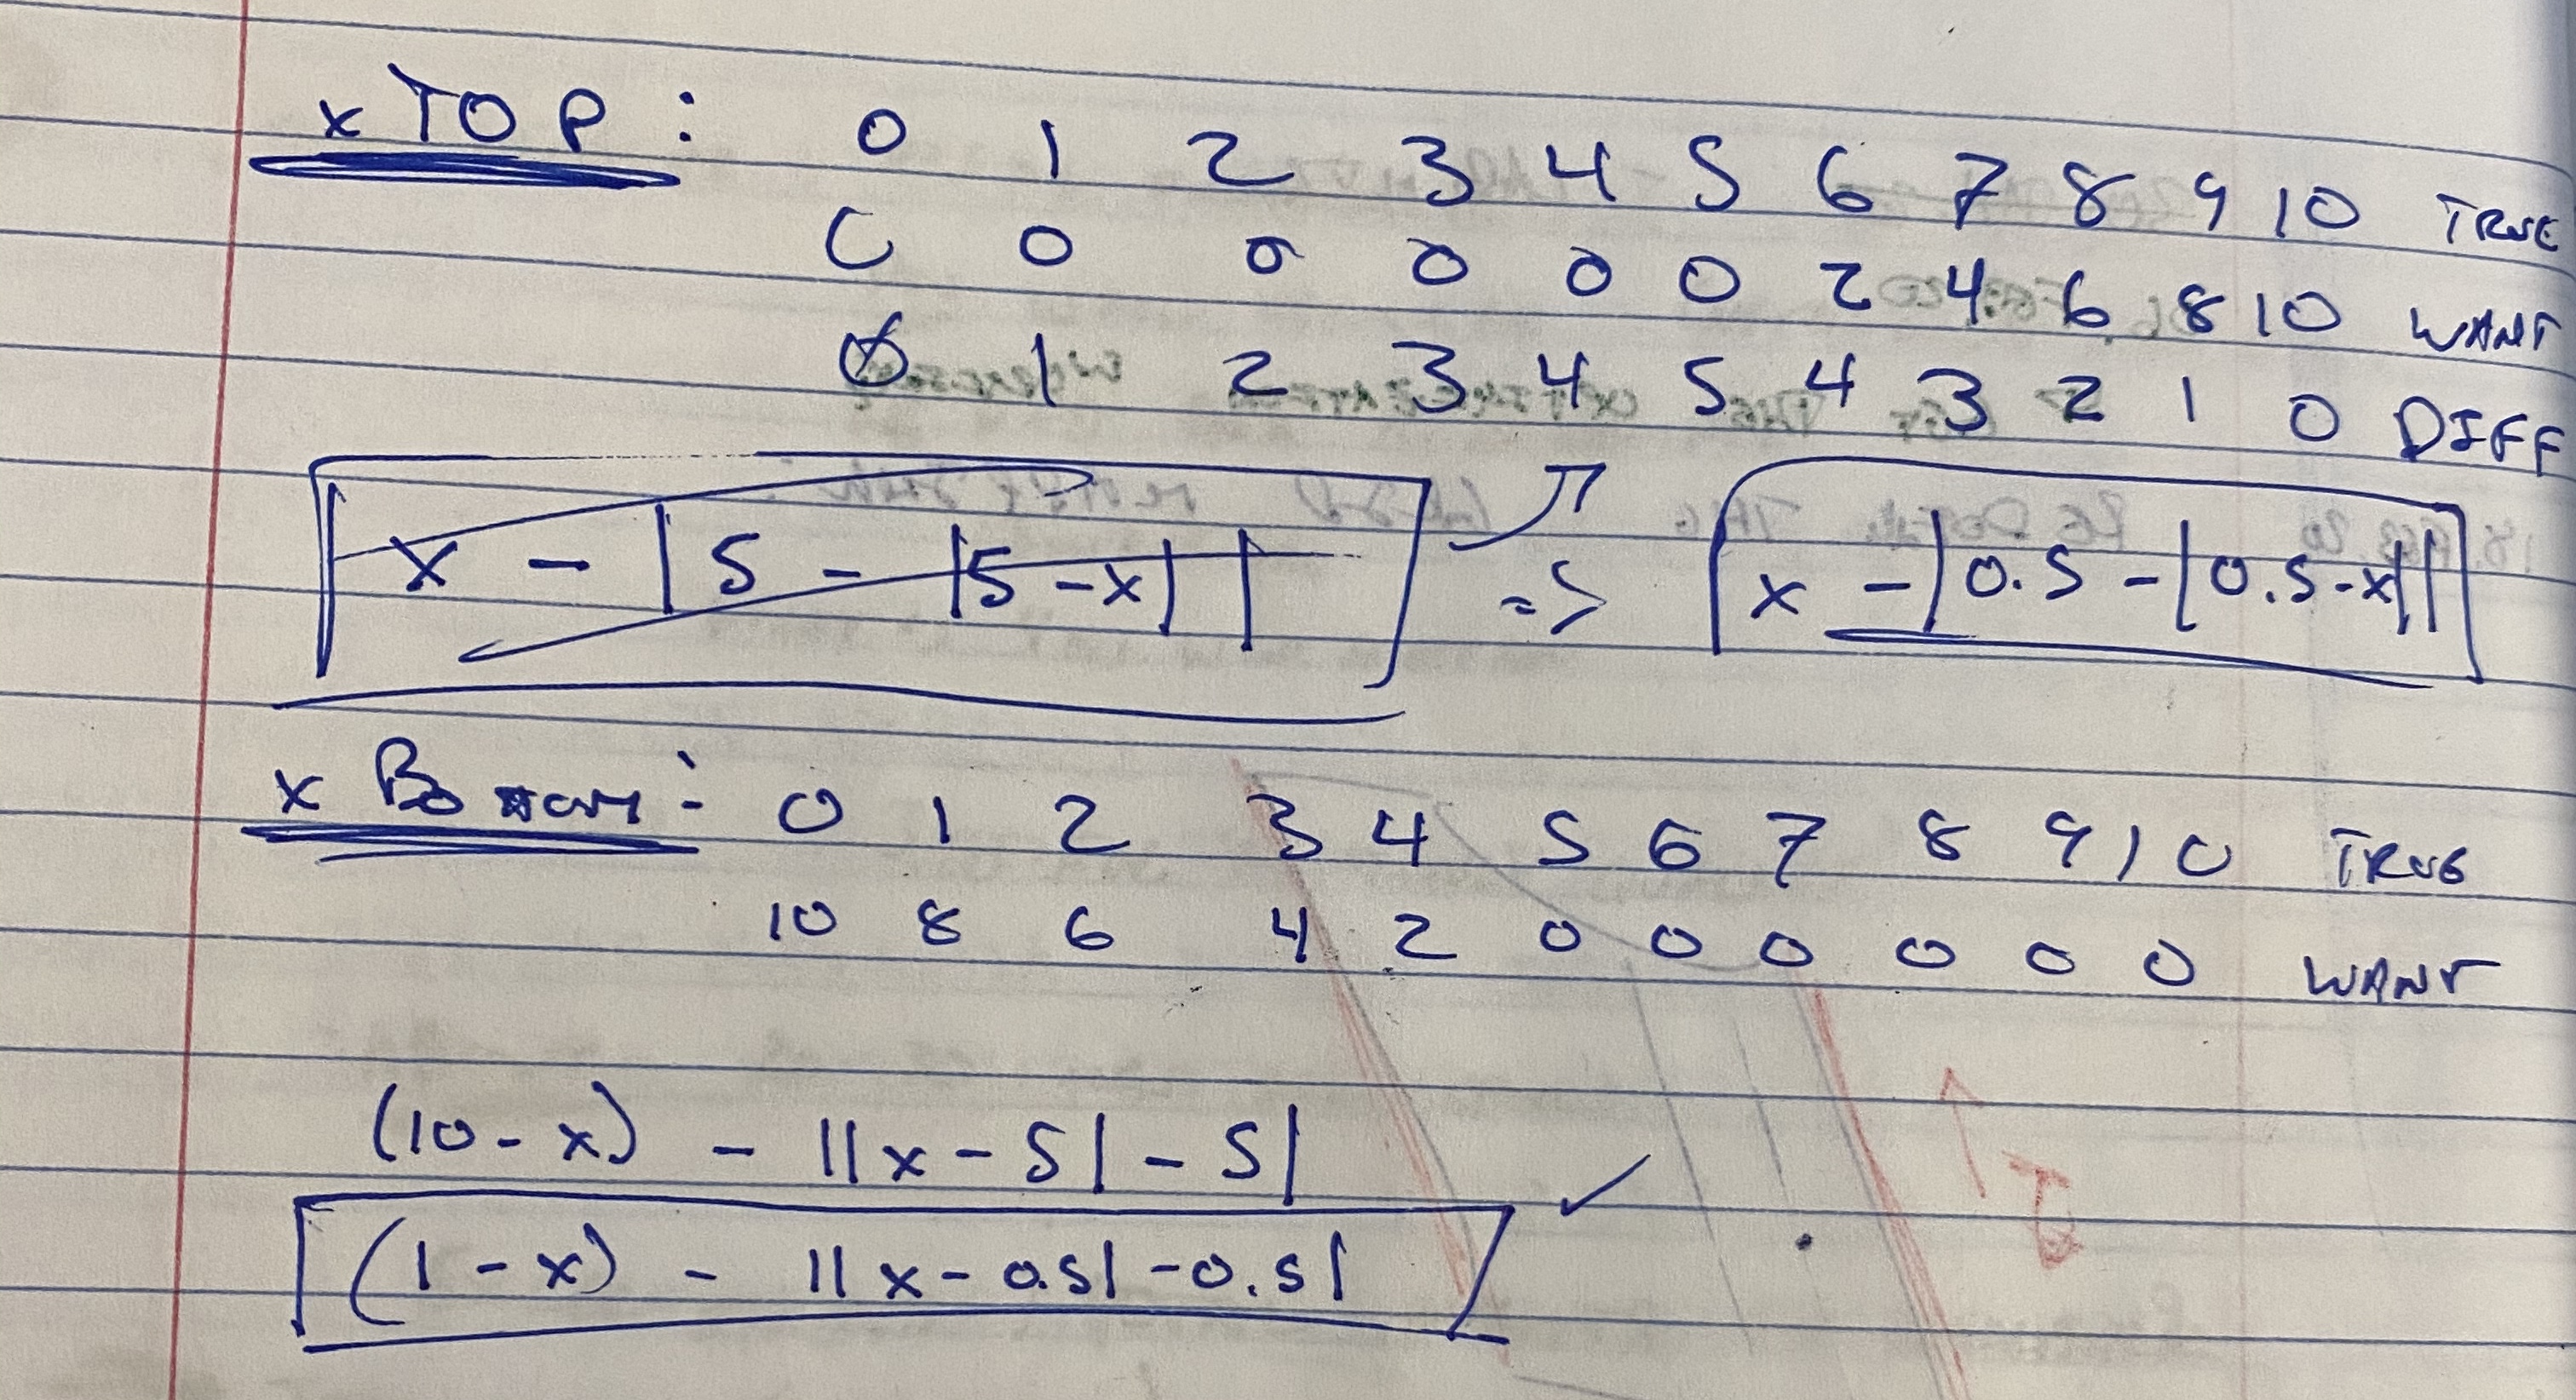 x TOP: 0 1 2 3 4 5 6 7 8 9 10 TRUE
0 0 0 0 0 0 2 4 6 8 10 WANT
0 1 2 3 4 5 4 3 2 1 0 DIFF
x - |5 - |5-x|| => x - |0.5 - |0.5-x||
x BOTTOM: 0 1 2 3 4 5 6 7 8 9 10 TRUE
10 8 6 4 2 0 0 0 0 0 0 WANT
(10-x) - ||x-5|-5|
(1-x) - ||x-0.5|-0.5| ✓